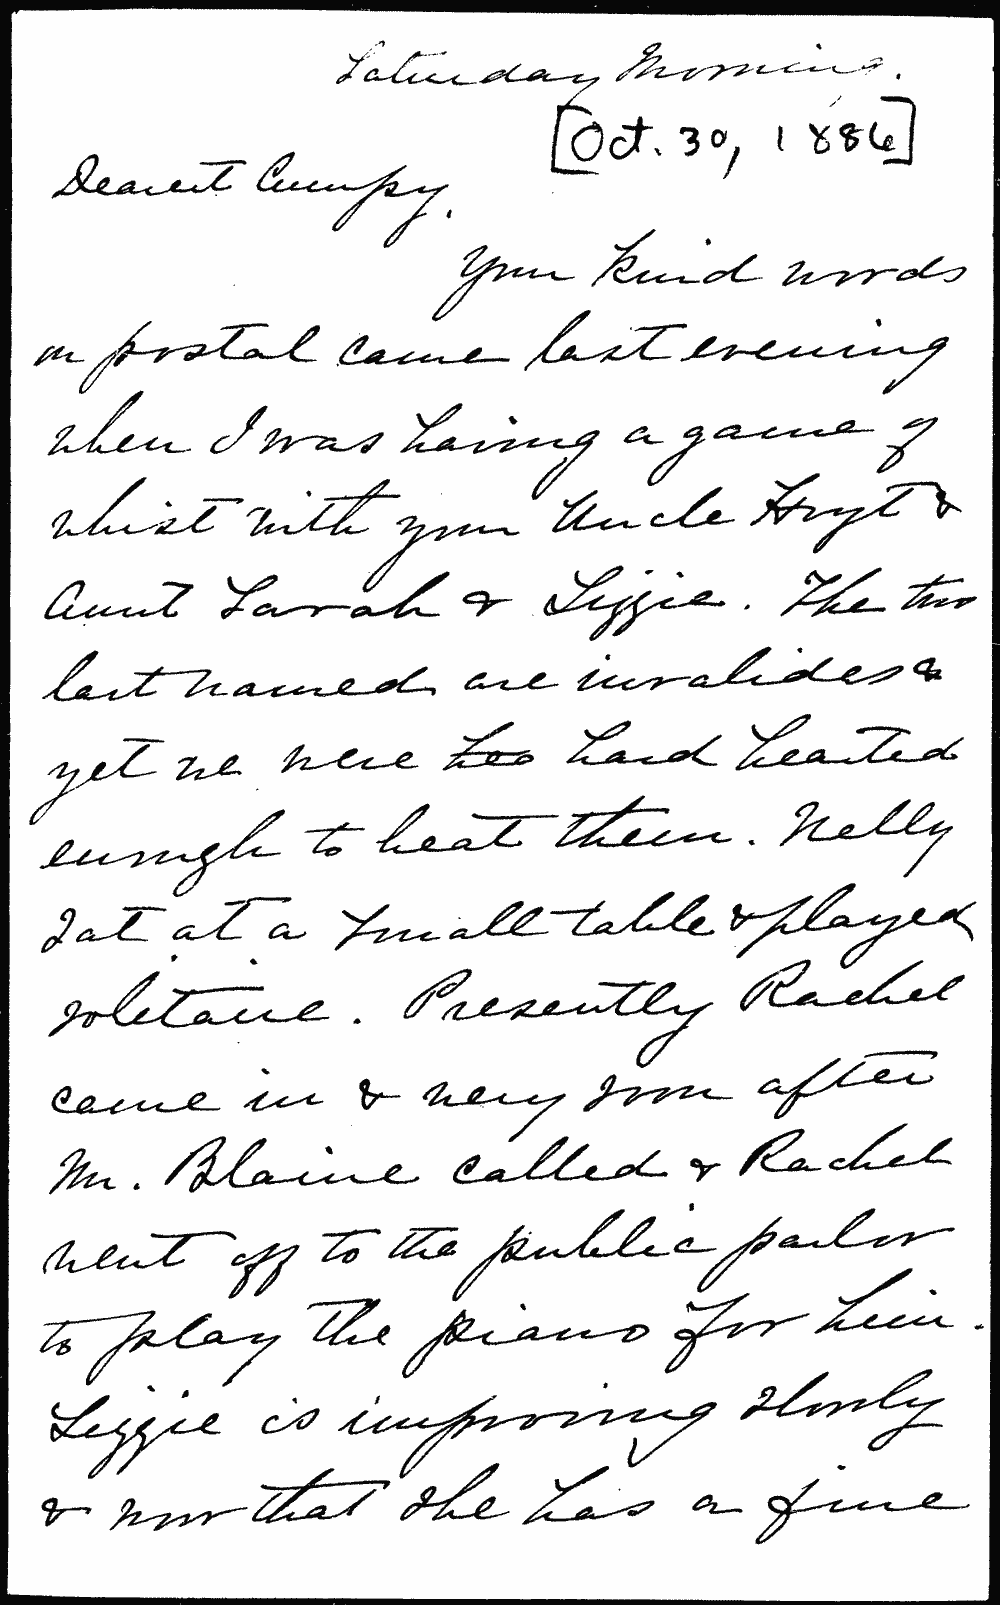 Saturday Morning.
[Oct. 30, 1886]
Dearest Cumpy.
Your kind words
on postal came last evening
when I was having a game of
whist with your Uncle Hoyt &
Aunt Sarah & Lizzie. The two
last named are invalides &
yet we were too hard hearted
enough to beat them. Nelly
sat at a small table & played
solitaire. Presently Rachel
came in & very soon after
Mr. Blaine called & Rachel
went off to the public parlor
to play the piano for him.
Lizzie is improving slowly
& now that she has a fine